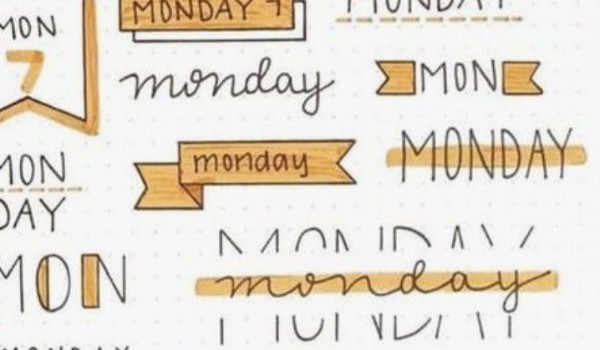 MON
7
MONDAY 7
MONDAY
monday
MON
monday
MONDAY
MON
DAY
MON
MONDAY
monday
MONDAY